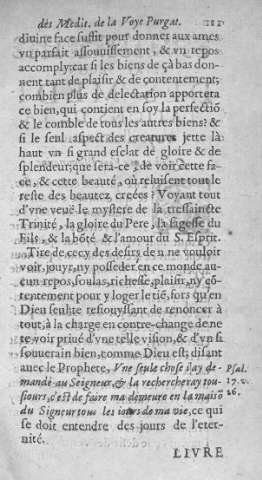 des Medit. de la Voye Purgat.
diuine face suffit pour donner aux ames
vn parfait assouuissement, & vn repos
accomply: car si les biens de çà bas don-
nent tant de plaisir & de contentement;
combien plus de delectation apportera
ce bien, qui contient en soy la perfectiõ
& le comble de tous les autres biens? &
si le seul aspect des creatures jette là
haut vn si grand esclat de gloire & de
splendeur, que sera-ce de voir cette fa-
ce, & cette beauté, où reluisent tout le
reste des beautez creées? Voyant tout
d'vne veuë le mystere de la tressaincte
Trinité, la gloire du Pere, la sagesse du
Fils, & la bõté & l'amour du S. Esprit.
Tire de cecy des desirs de ne vouloir
voir, jouyr, ny posseder en ce monde au-
cun repos, soulas, richesse, plaisir, ny cõ-
tentement pour y loger le tiẽ, fors qu'en
Dieu seul, te resiouyssant de renoncer à
tout, à la charge en contre-change de ne
te voir priué d'vne telle vision, & d'vn si
souuerain bien, comme Dieu est; disant
auec le Prophete, Vne seule chose j'ay de-
mandé au Seigneur, & la rechercheray tou-
siours, c'est de faire ma demeure en la maisõ
du Seigneur tous les iours de ma vie, ce qui
se doit entendre des jours de l'eter-
nité.
Psal.
26.
LIVRE